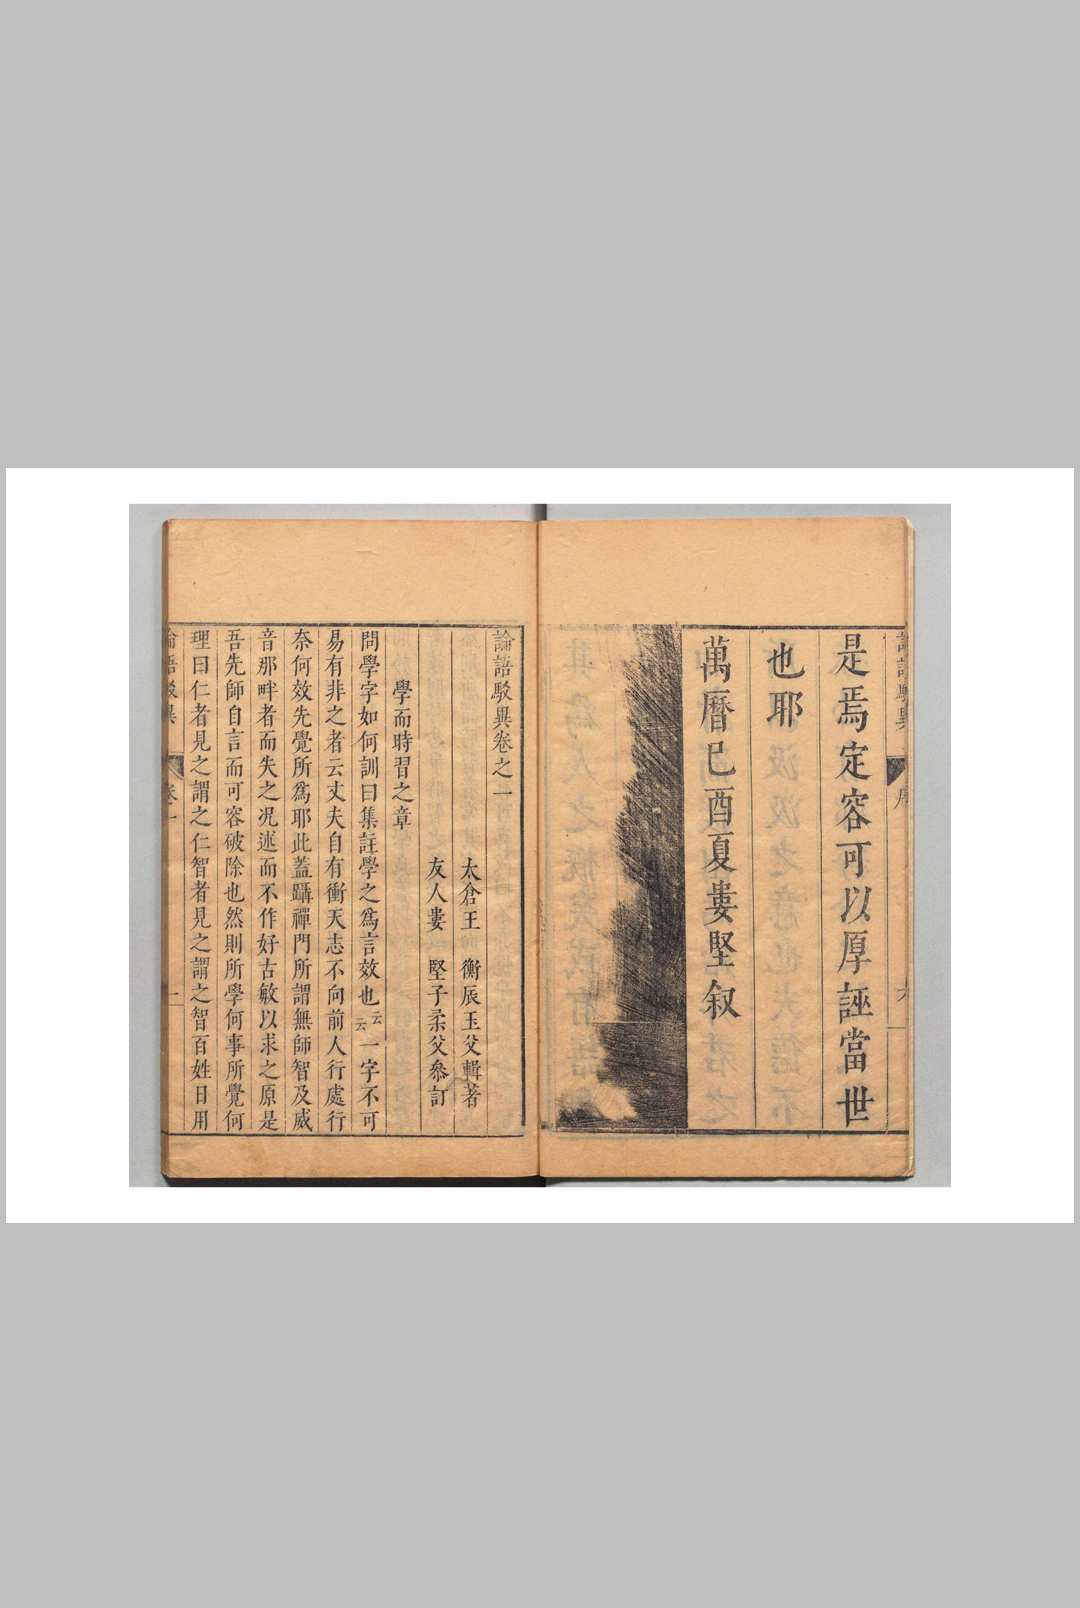 是焉定容可以厚誣當世
也耶
萬曆己酉夏婁堅叙
論語駁異卷之一
太倉王 衡辰玉父輯著
友人婁 堅子柔父叅訂
學而時習之章
問學字如何訓曰集註學之爲言效也云云一字不可
易有非之者云丈夫自有衝天志不向前人行處行
奈何效先覺所爲耶此蓋躡禪門所謂無師智及威
音那畔者而失之况述而不作好古敏以求之原是
吾先師自言而可容破除也然則所學何事所覺何
理曰仁者見之謂之仁智者見之謂之智百姓日用
論語駁異
卷一
一
論語駁異
序
六